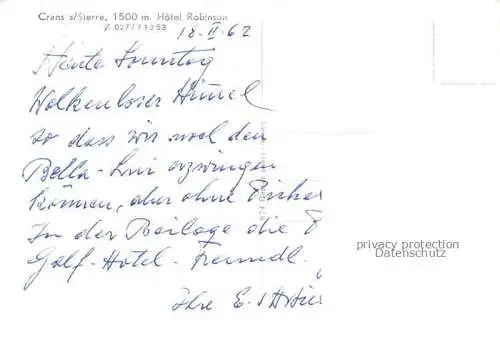 Crans s/Sierre, 1500 m. Hôtel Robinson
18. II. 62
Heute Sonntag
Wolkenloser Himmel
so dass wir noch den
Bella-Lui erzwingen
können, aber ohne
In der Beilage die
Golf-Hotel. Freundl.
Ihre E.
privacy protection
Datenschutz